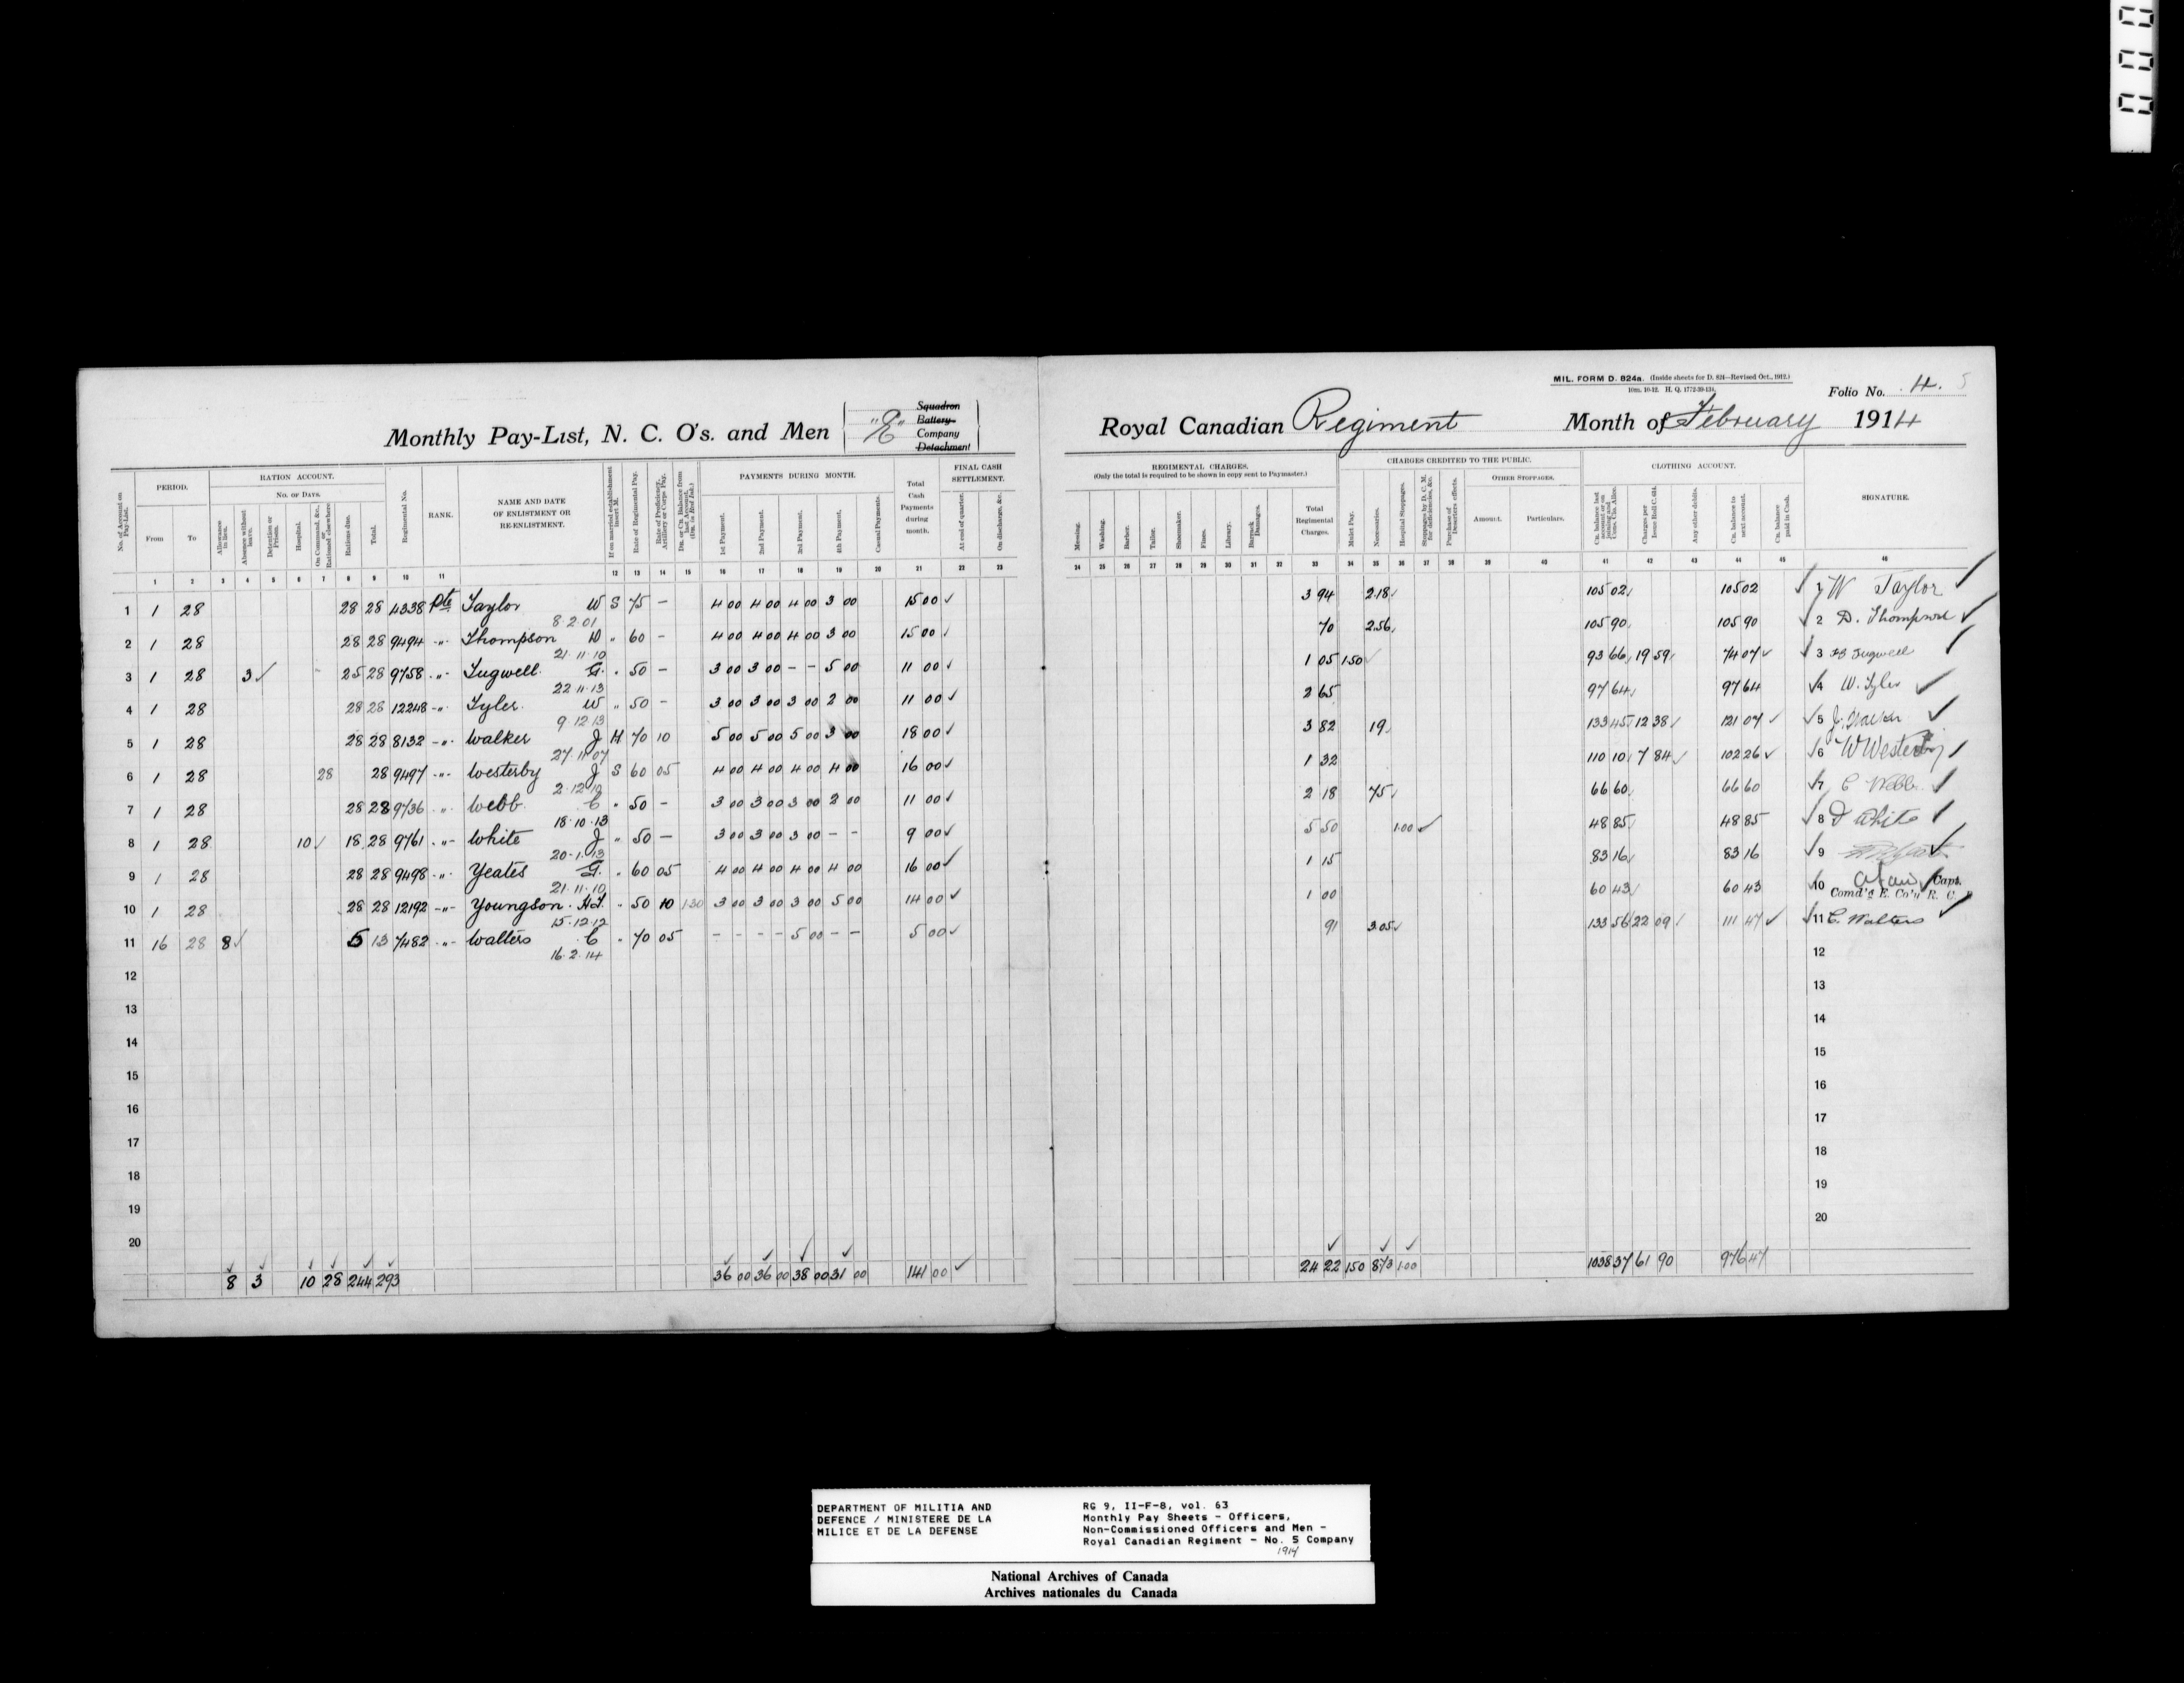 MIL. FORM D. 824a. (Inside sheets for D. 824—Revised Oct., 1912.)
10m. 10-12. H. Q. 1772-39-134.
Folio No. 4. 5
Monthly Pay-List, N. C. O's. and Men "E" Squadron Battery Company Detachment
Royal Canadian Regiment Month of February 1914
No. of Account on Pay-List.
PERIOD.
From
To
RATION ACCOUNT.
No. of Days.
Allowance in lieu.
Absence without leave.
Detention or Prison.
Hospital.
On Command, &c., or Rationed elsewhere
Rations due.
Total.
Regimental No.
RANK.
NAME AND DATE OF ENLISTMENT OR RE-ENLISTMENT.
If on married establishment insert M.
Rate of Regimental Pay.
Rate of Proficiency, Artillery or Corps Pay.
Dr. or Cr. Balance from last Account. (Dr. in Red Ink.)
PAYMENTS DURING MONTH.
1st Payment.
2nd Payment.
3rd Payment.
4th Payment.
Casual Payments.
Total Cash Payments during month.
FINAL CASH SETTLEMENT.
At end of quarter.
On discharge, &c.
REGIMENTAL CHARGES.
(Only the total is required to be shown in copy sent to Paymaster.)
Messing.
Washing.
Barber.
Tailor.
Shoemaker.
Fines.
Library.
Barrack Damages.
Total Regimental Charges.
CHARGES CREDITED TO THE PUBLIC.
Mulct Pay.
Necessaries.
Hospital Stoppages.
Stoppages by D. C. M. for deficiencies, &c.
Purchase of Deserters effects.
OTHER STOPPAGES.
Amount.
Particulars.
CLOTHING ACCOUNT.
Charges per Issue Roll C. 634.
Any other debits.
Cr. balance to next account.
Cr. balance paid in Cash.
SIGNATURE.
1 2 3 4 5 6 7 8 9 10 11 12 13 14 15 16 17 18 19 20 21 22 23
24 25 26 27 28 29 30 31 32 33 34 35 36 37 38 39 40 41 42 43 44 45 46
1 1 28 28 28 4338 Pte Taylor W S 75 - 4 00 4 00 4 00 3 00 15 00 ✓ 3 94 2.18 105 02 105 02 ✓ 1 W Taylor ✓
8 2 01
2 1 28 28 28 9494 -"- Thompson D " 60 - 4 00 4 00 4 00 3 00 15 00 ✓ 70 2.56 105 90 105 90 ✓ 2 D. Thompson ✓
21.11.10
3 1 28 3 ✓ 25 28 9758 -"- Tugwell. G. " 50 - 3 00 3 00 - - 5 00 11 00 ✓ 1 05 1 50 ✓ 93 66 19 59 74 07 ✓ 3 Tugwell ✓
22 11.13
4 1 28 28 28 12248 -"- Tyler. W " 50 - 3 00 3 00 3 00 2 00 11 00 ✓ 2 65 97 64 97 64 ✓ 4 W. Tyler ✓
9 12 13
5 1 28 28 28 8132 -"- Walker J M 70 10 5 00 5 00 5 00 3 00 18 00 ✓ 3 82 19 133 45 12 38 121 07 ✓ 5 J. Walker ✓
27 11 07
6 1 28 28 28 9497 -"- Westerby J S 60 05 4 00 4 00 4 00 4 00 16 00 ✓ 1 32 110 10 7 84 ✓ 102 26 ✓ 6 W Westerby ✓
2.12.10
7 1 28 28 28 9736 -"- Webb C " 50 - 3 00 3 00 3 00 2 00 11 00 ✓ 2 18 75 66 60 66 60 ✓ 7 C Webb ✓
18.10.13
8 1 28 10 ✓ 18 28 9761 -"- White J " 50 - 3 00 3 00 3 00 - - 9 00 ✓ 5 50 1.00 ✓ 48 85 48 85 ✓ 8 White ✓
20-1.13
9 1 28 28 28 9498 -"- Yeates G. " 60 05 4 00 4 00 4 00 4 00 16 00 ✓ 1 15 83 16 83 16 ✓ 9
21.11.10
10 1 28 28 28 12192 -"- Youngson. " 50 10 1 30 3 00 3 00 3 00 5 00 14 00 ✓ 1 00 60 43 60 43 ✓ 10 Capt.
15.12.12 Comd'g E. Co'y R. C. R
11 16 28 8 ✓ 5 13 7482 -"- Walters C " 70 05 - - - - 5 00 - - 5 00 ✓ 91 3.05 ✓ 133 56 22 09 111 47 ✓ 11 C. Walters ✓
16.2.14
12 12
13 13
14 14
15 15
16 16
17 17
18 18
19 19
20 20
8 3 10 28 244 293 36 00 36 00 38 00 31 00 141 00 ✓ 24 22 1 50 8 73 1.00 1038 37 61 90 976 47
DEPARTMENT OF MILITIA AND
DEFENCE / MINISTERE DE LA
MILICE ET DE LA DEFENSE
RG 9, II-F-8, vol. 63
Monthly Pay Sheets - Officers,
Non-Commissioned Officers and Men -
Royal Canadian Regiment - No. 5 Company
1914
National Archives of Canada
Archives nationales du Canada